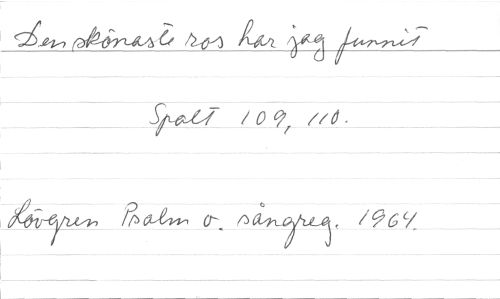 Den skönaste ros har jag funnit
Spalt 109, 110.
Lövgren Psalm o. sångreg. 1964.